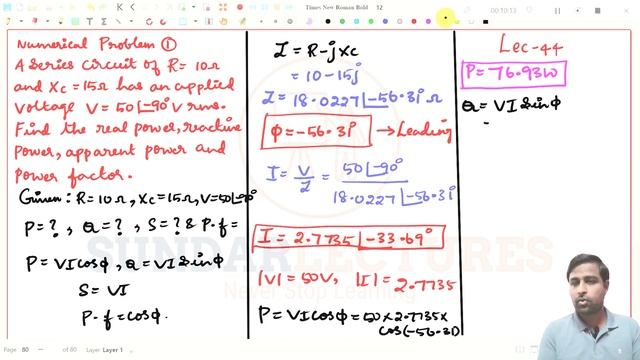 Times New Roman Bold 12
00:10:13
Numerical Problem ①
A series circuit of R= 10Ω
and Xc = 15Ω has an applied
voltage V = 50∠-90° V rms.
Find the real power, reactive
power, apparent power and
power factor.
Given: R=10Ω, Xc=15Ω, V=50∠-90°
P=?, Q=?, S=? & P.f=
P=VIcosφ, Q=VIsinφ
S=VI
P.f=cosφ.
Z = R-jXc
= 10-15j
Z= 18.0227∠-56.31° Ω
φ=-56.31° → Leading
I = V/Z = 50∠-90° / 18.0227∠-56.31°
I = 2.7735∠-33.69°
|V|=50V, |I|=2.7735
P=VIcosφ=50×2.7735×
cos(-56.31)
Lec-44
P=76.93W
Q=VIsinφ
=
SUNDAR LECTURES
Never Stop Learning
Page 80 of 80 Layer Layer 1